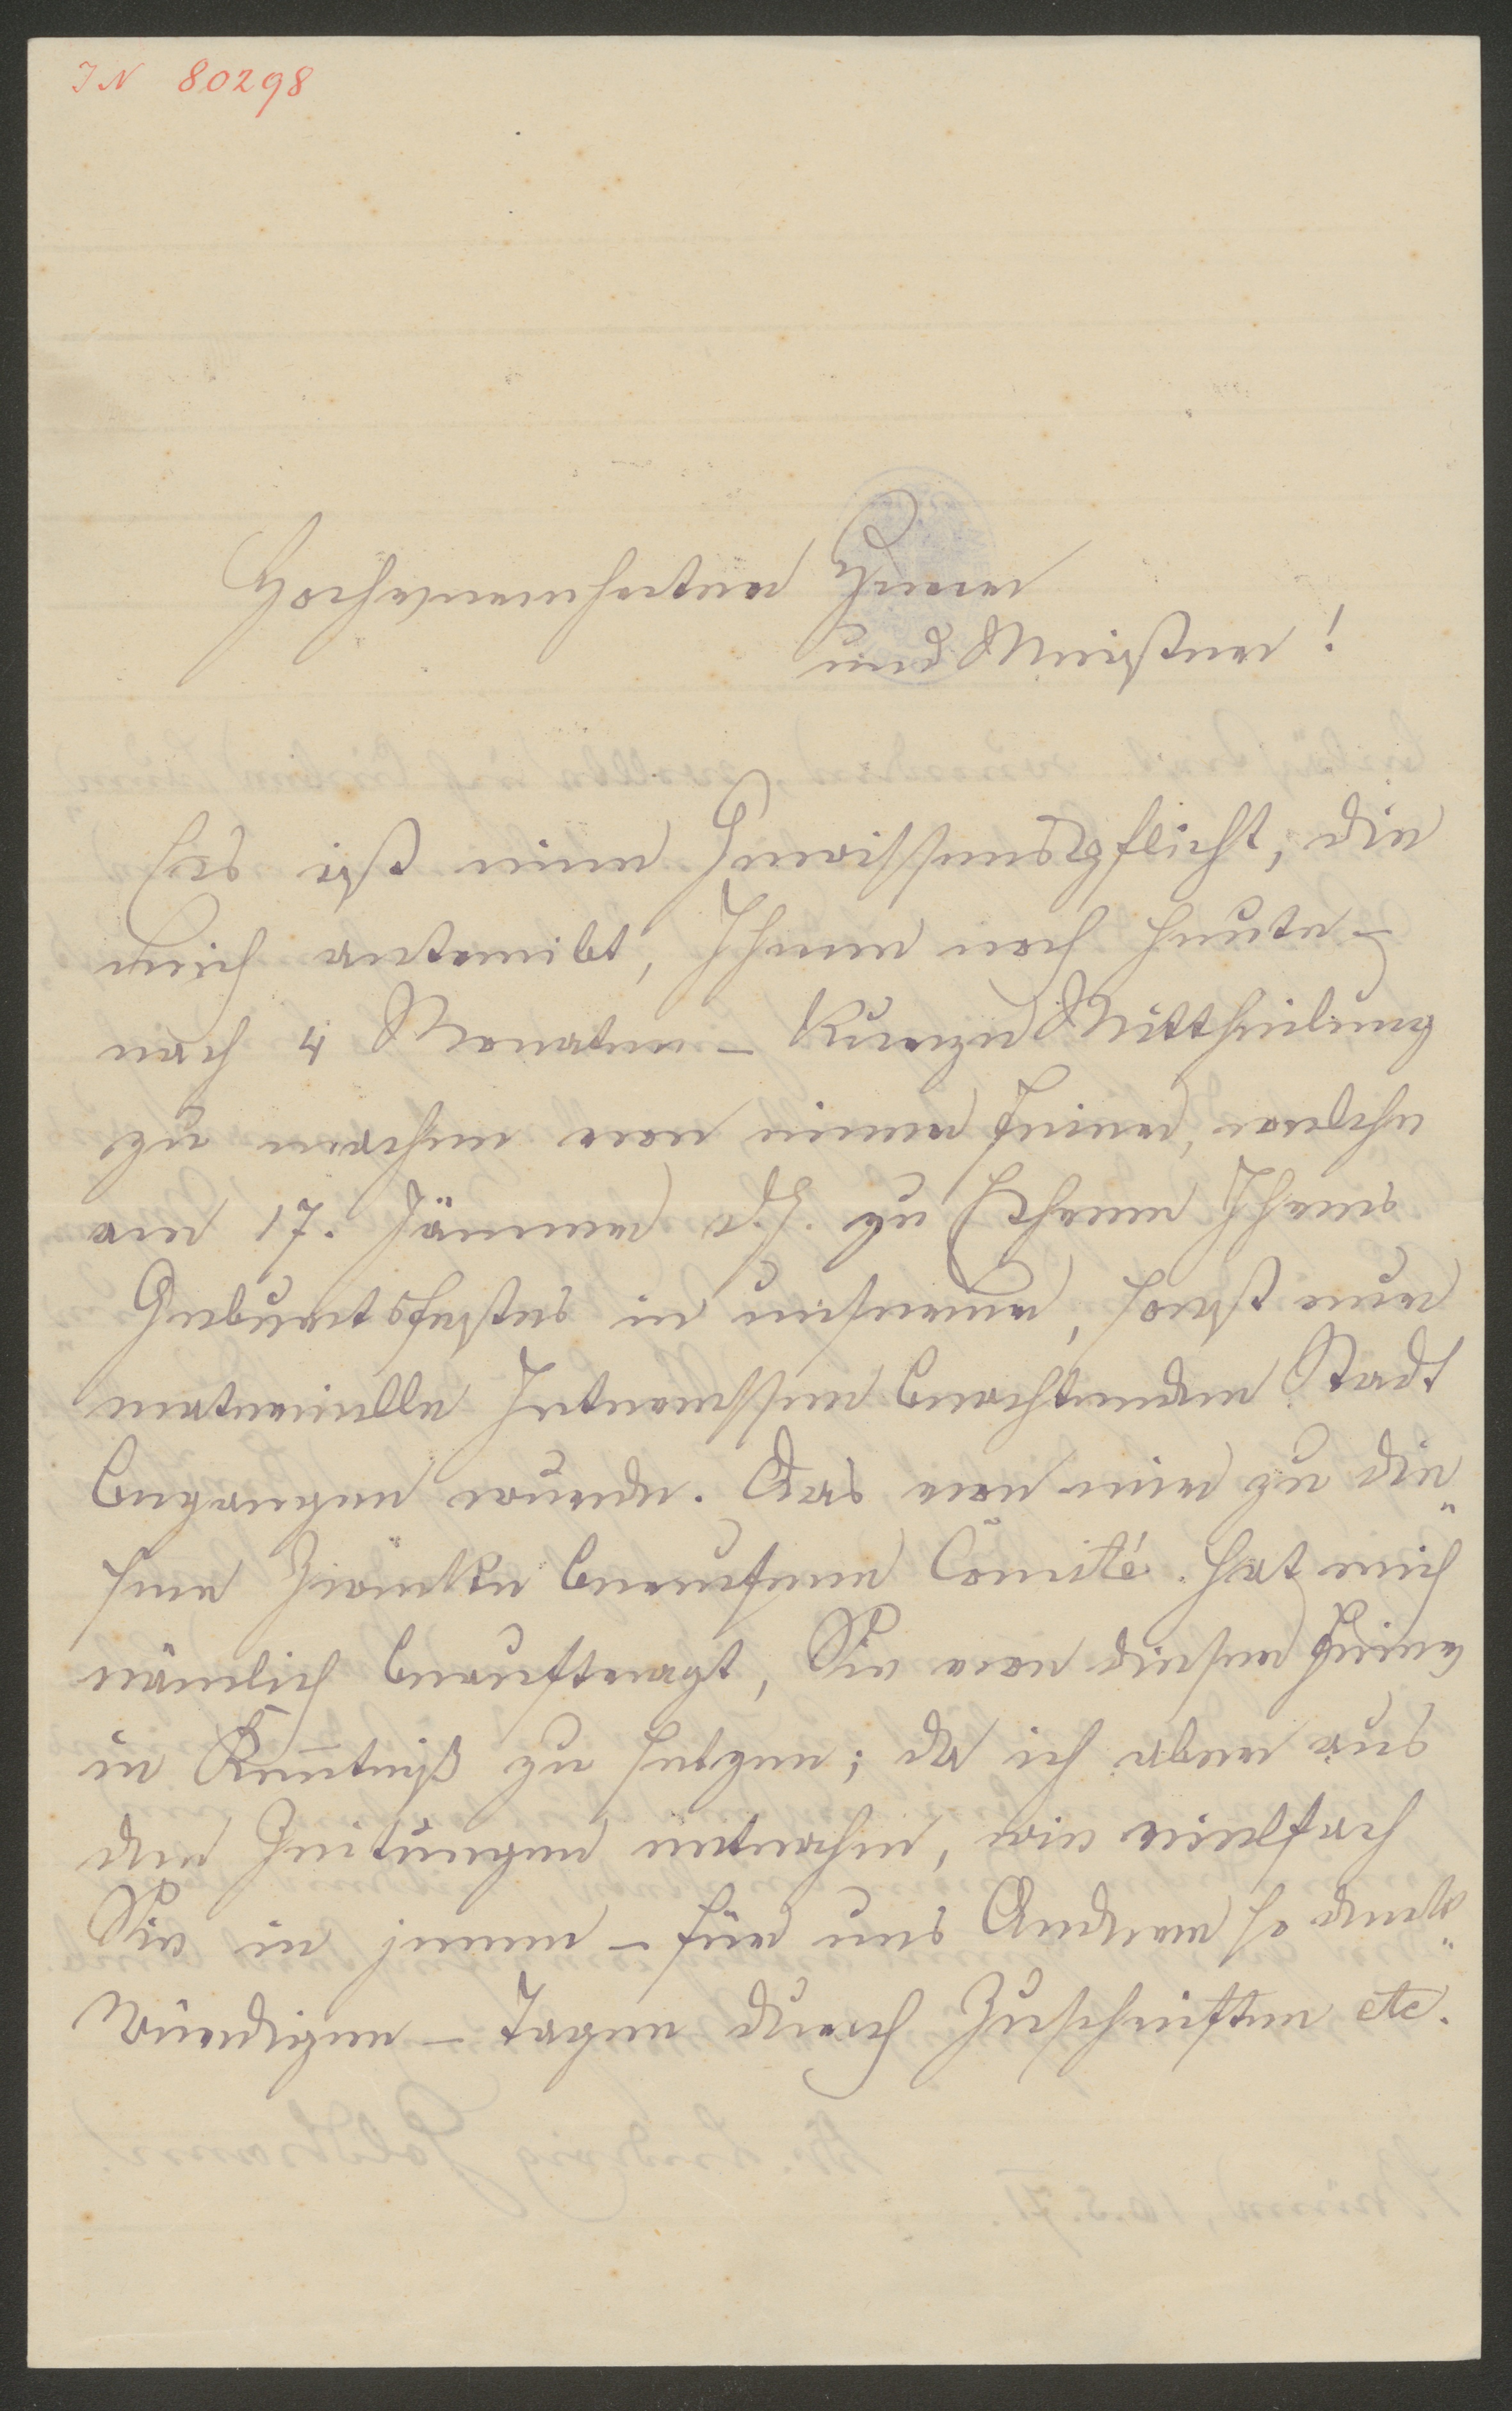 IN 80298
Hochverehrter Herr
und Meister!
Es ist eine Gewissenspflicht, die
mich antreibt, Ihnen noch heute –
nach 4 Monaten – kurze Mittheilung
zu machen von einer Feier, welche
am 17. Jänner d. J. zu Ehren Ihres
Geburtsfestes in unserer, sonst nur
materielle Interessen beachtenden Stadt
begangen wurde. Das von mir zu die„
sem Zwecke berufene Comité hat mich
nämlich beauftragt, Sie von dieser Feier
in Kenntniß zu setzen; da ich aber aus
den Zeitungen entnahm, wie vielfach
Sie in jenen – für uns Andern so denk„
würdigen – Tagen durch Zuschriften etc.